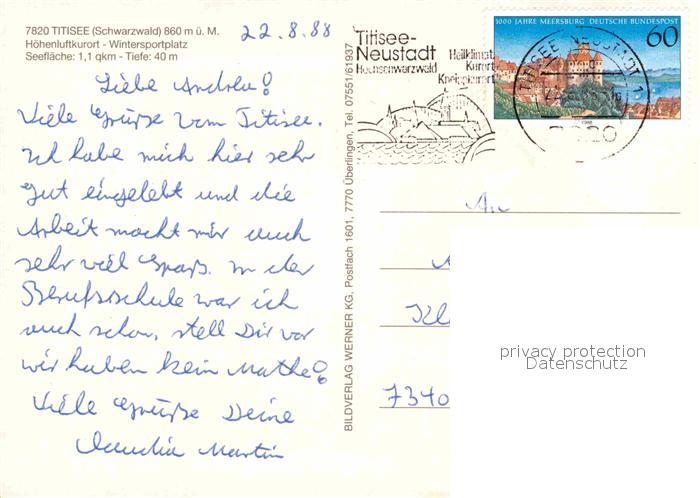 7820 TITISEE (Schwarzwald) 860 m ü. M.
Höhenluftkurort - Wintersportplatz
Seefläche: 1,1 qkm - Tiefe: 40 m
22.8.88
Liebe Andrea!
Viele Grüße vom Titisee.
Ich habe mich hier sehr
gut eingelebt und die
Arbeit macht mir auch
sehr viel Spaß. In der
Berufsschule war ich
auch schon, stell Dir vor
wir haben kein Mathe!
Viele Grüße Deine
Claudia Martin
BILDVERLAG WERNER KG, Postfach 1601, 7770 Überlingen, Tel. 07551/61937
Titisee-
Neustadt
Hochschwarzwald
Heilklimat.
Kurort
Kneippkurort
1000 JAHRE MEERSBURG DEUTSCHE BUNDESPOST
60
1988
TITISEE-NEUSTADT 1
7820
An
7340
privacy protection
Datenschutz